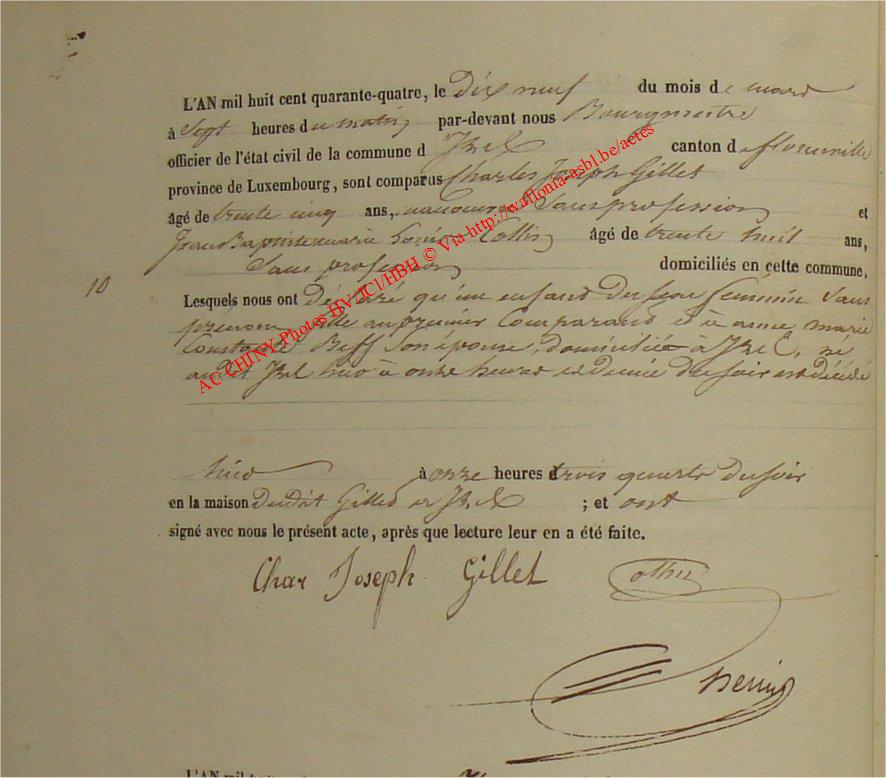 L'AN mil huit cent quarante-quatre, le dix neuf du mois de mars
à Sept heures du matin, par-devant nous Bourgmestre
officier de l'état civil de la commune d'Izel canton de florenville
province de Luxembourg, sont comparus Charles Joseph Gillet
âgé de trente cinq ans, Sans profession et
Jean Baptiste marie Collin âgé de trente huit ans,
Sans profession domiciliés en cette commune,
10
Lesquels nous ont déclaré qu'un enfant du sexe féminin Sans
prénom fille au premier Comparant et à anne marie
Beff son épouse, domiciliée à Izel, né
audit Izel hier à onze heures et demie du soir est décédé
hier à onze heures trois quarts du soir
en la maison dudit Gillet à Izel ; et ont
signé avec nous le présent acte, après que lecture leur en a été faite.
Char Joseph Gillet Collin
L'AN mil
AC CHINY Photos HV/JCl/HBH © Via http://wallonia-asbl.be/actes